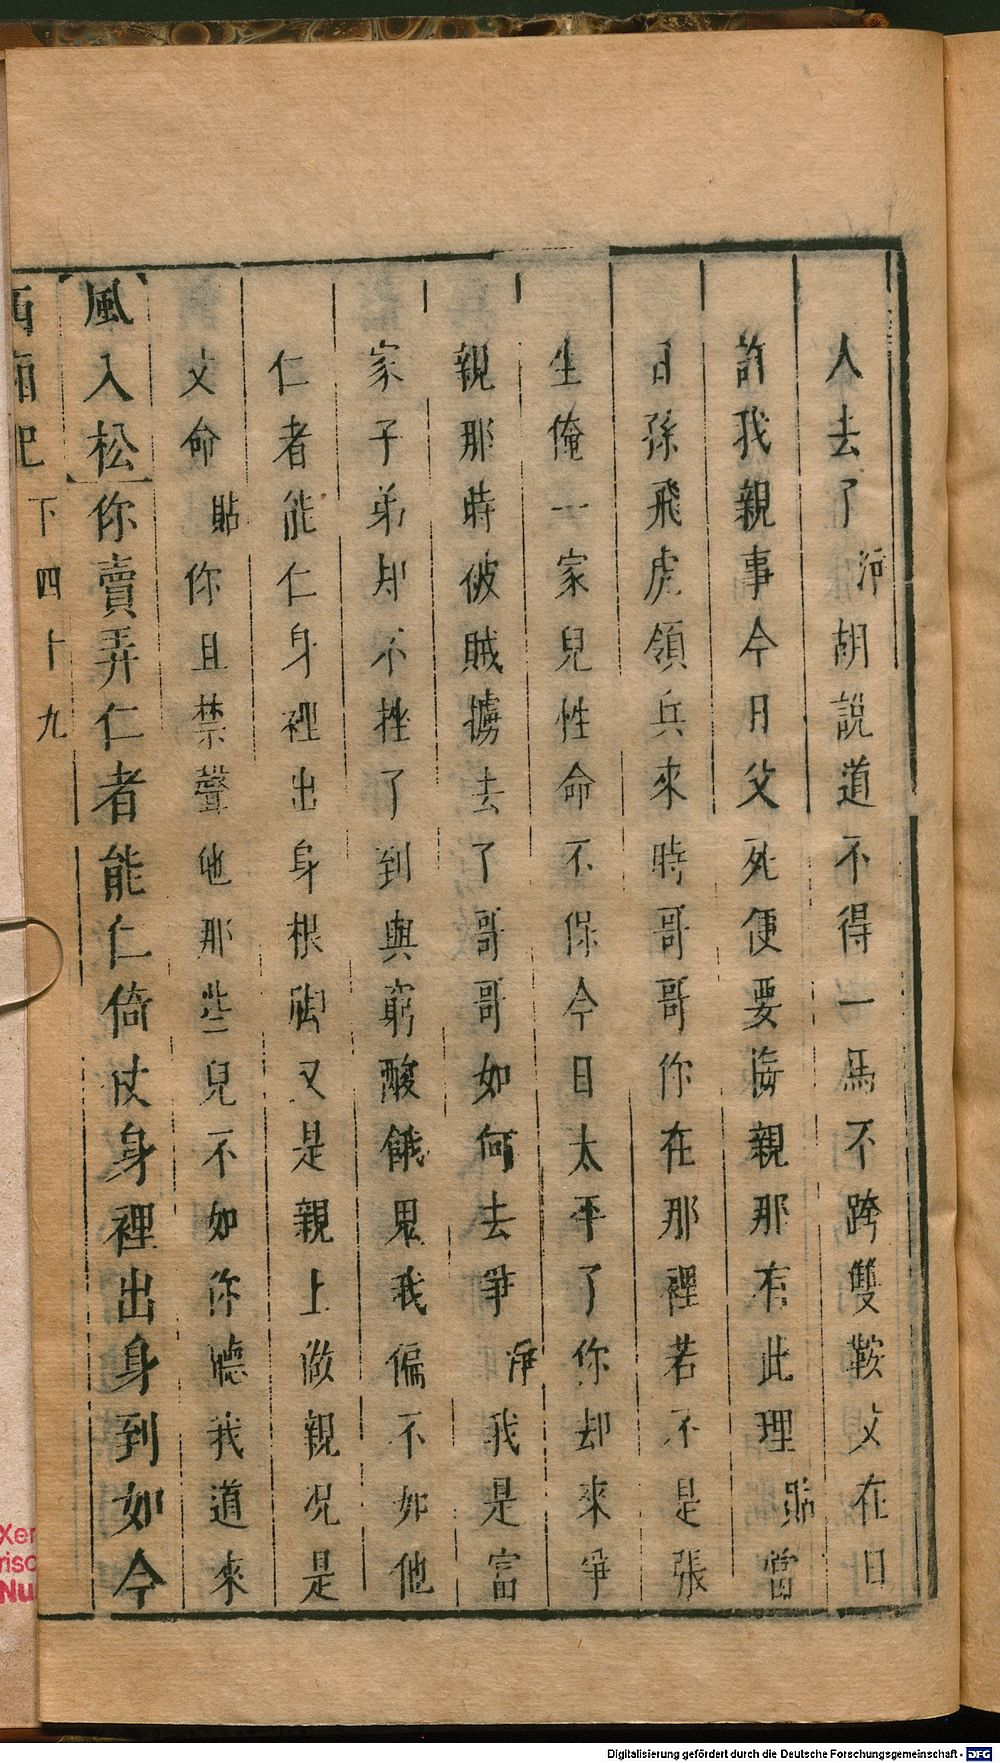 人去了淨胡說道不得一馬不跨雙鞍父在日
許我親事今日父死便要悔親那有此理貼當
日孫飛虎領兵來時哥哥你在那裡若不是張
生俺一家兒性命不保今日太平了你却來爭
親那時彼賊擄去了哥哥如何去爭淨我是富
家子弟却不挫了到與窮酸餓鬼我偏不如他
仁者能仁身裡出身根脚又是親上做親况是
父命貼你且禁聲他那些兒不如你聽我道來
【風入松】你賣弄仁者能仁倚仗身裡出身到如今
西廂記 下 四十九
Digitalisierung gefördert durch die Deutsche Forschungsgemeinschaft - DFG